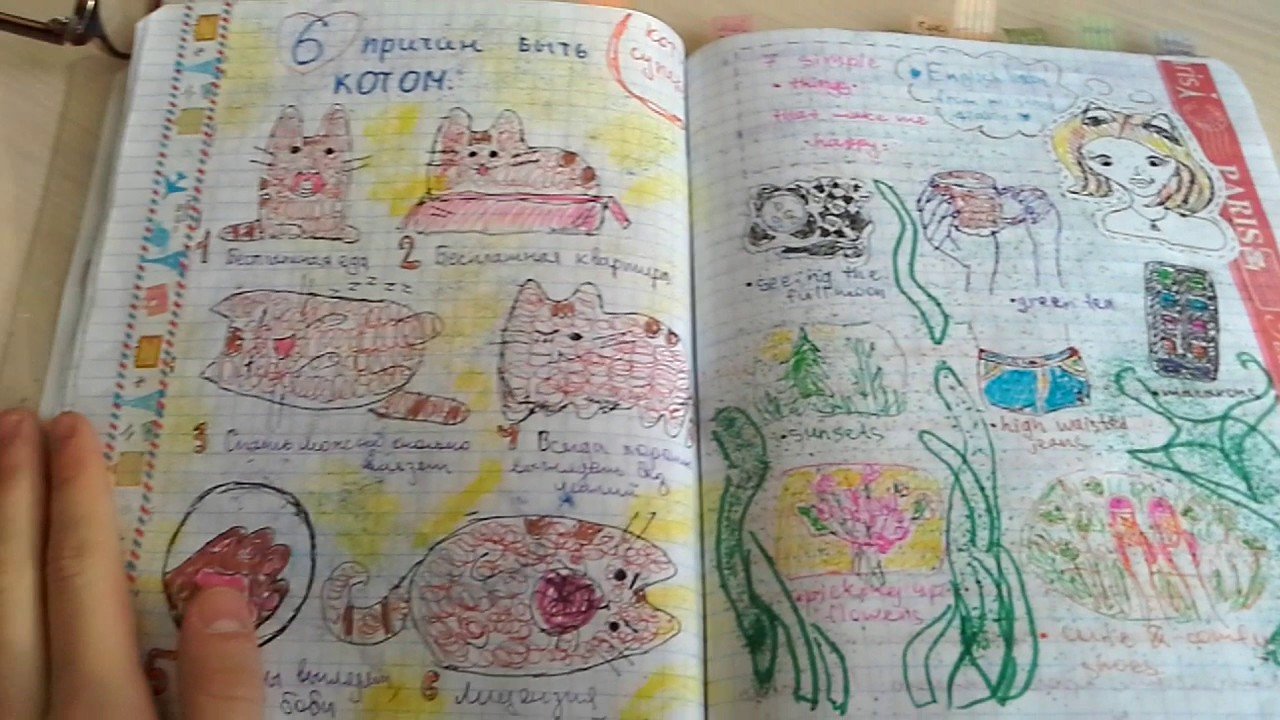 6 причин быть
котом:
Кот
1 Бесплатная еда
2 Бесплатная квартира
z z z z z
3 Спать можно сколько
влезет
4 Всегда хорошо
выглядеть без
усилий
5
6 Лицензия
7 simple
• things •
that make me
• happy •
English
• seeing the
full moon
• green tea
• sunsets
• high waisted
jeans
• macarons
• picking up
flowers
• cute & comfy
shoes
PARIS